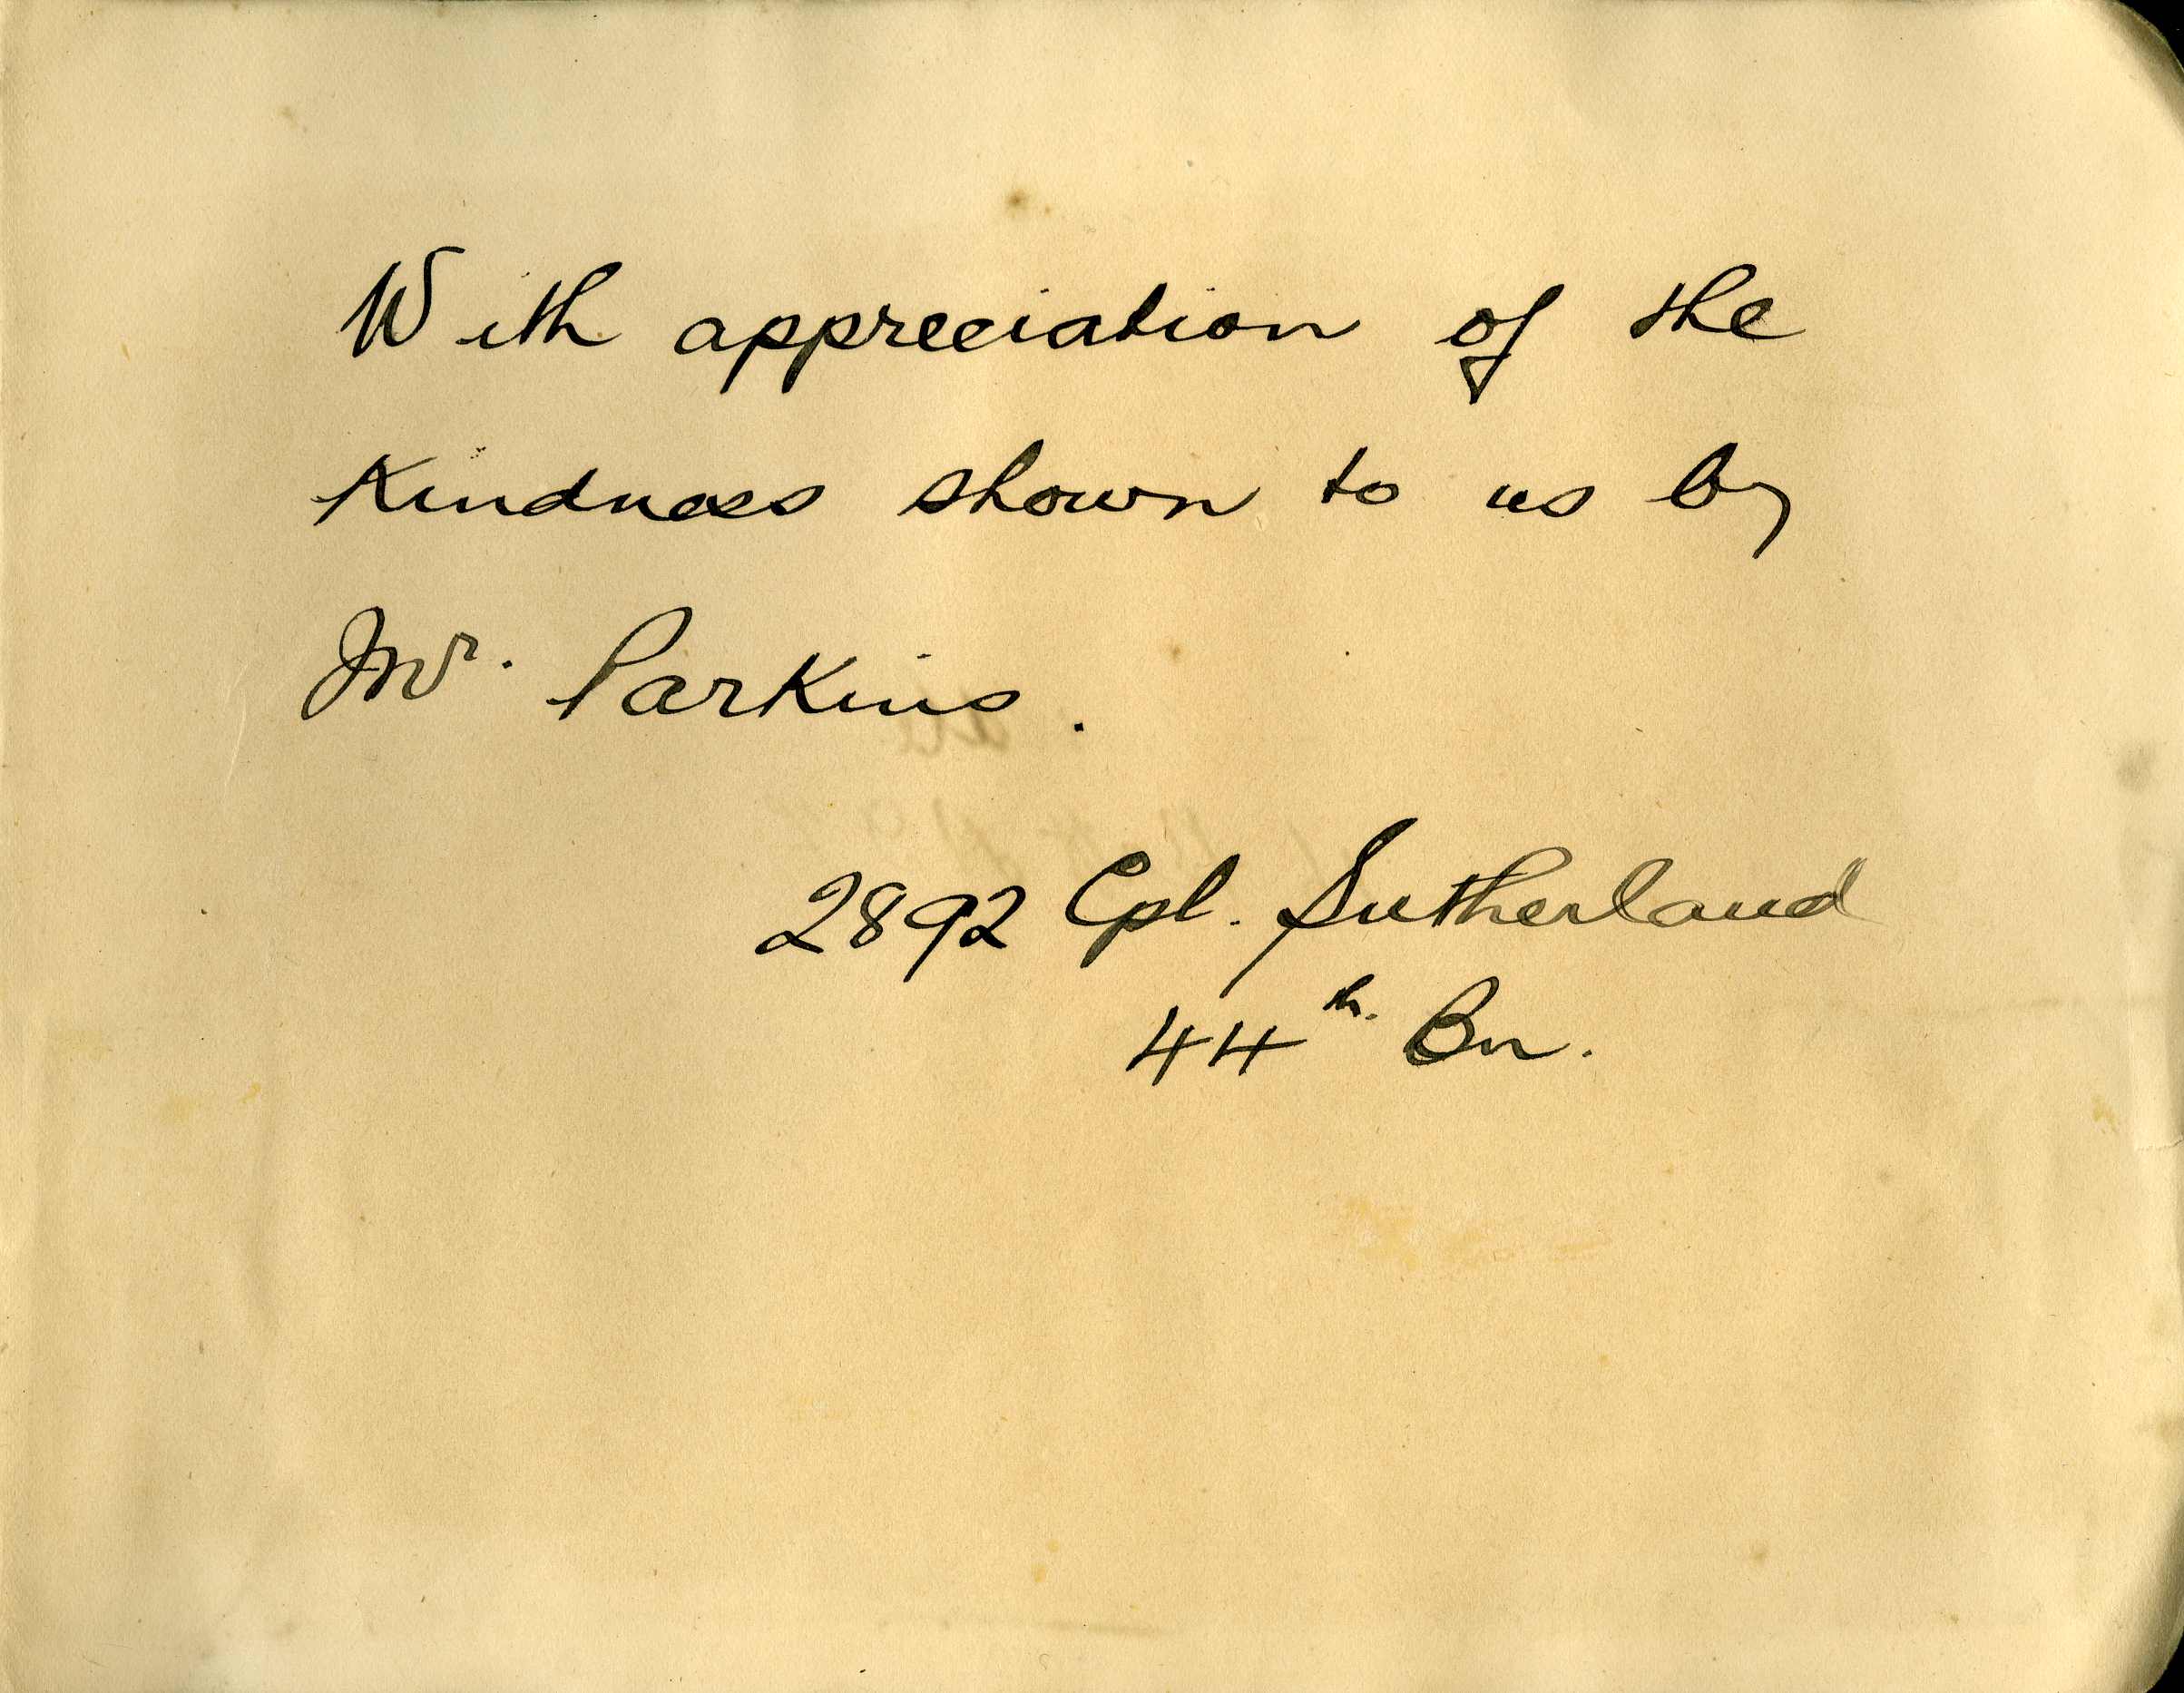 With appreciation of the
Kindness shown to us by
Mr. Parkins.
2892 Cpl. Sutherland
44th. Bn.